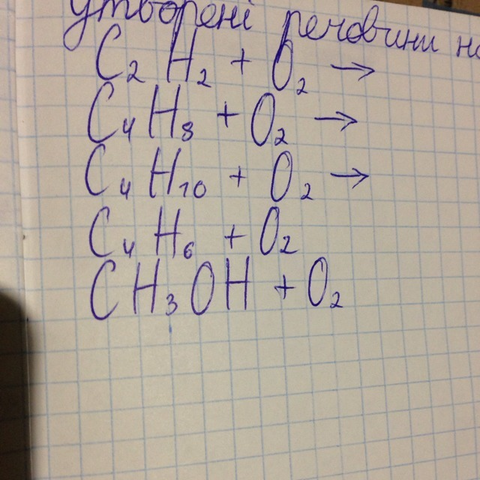 утворені речовини
C₂H₂ + O₂ →
C₄H₈ + O₂ →
C₄H₁₀ + O₂ →
C₄H₆ + O₂
CH₃OH + O₂